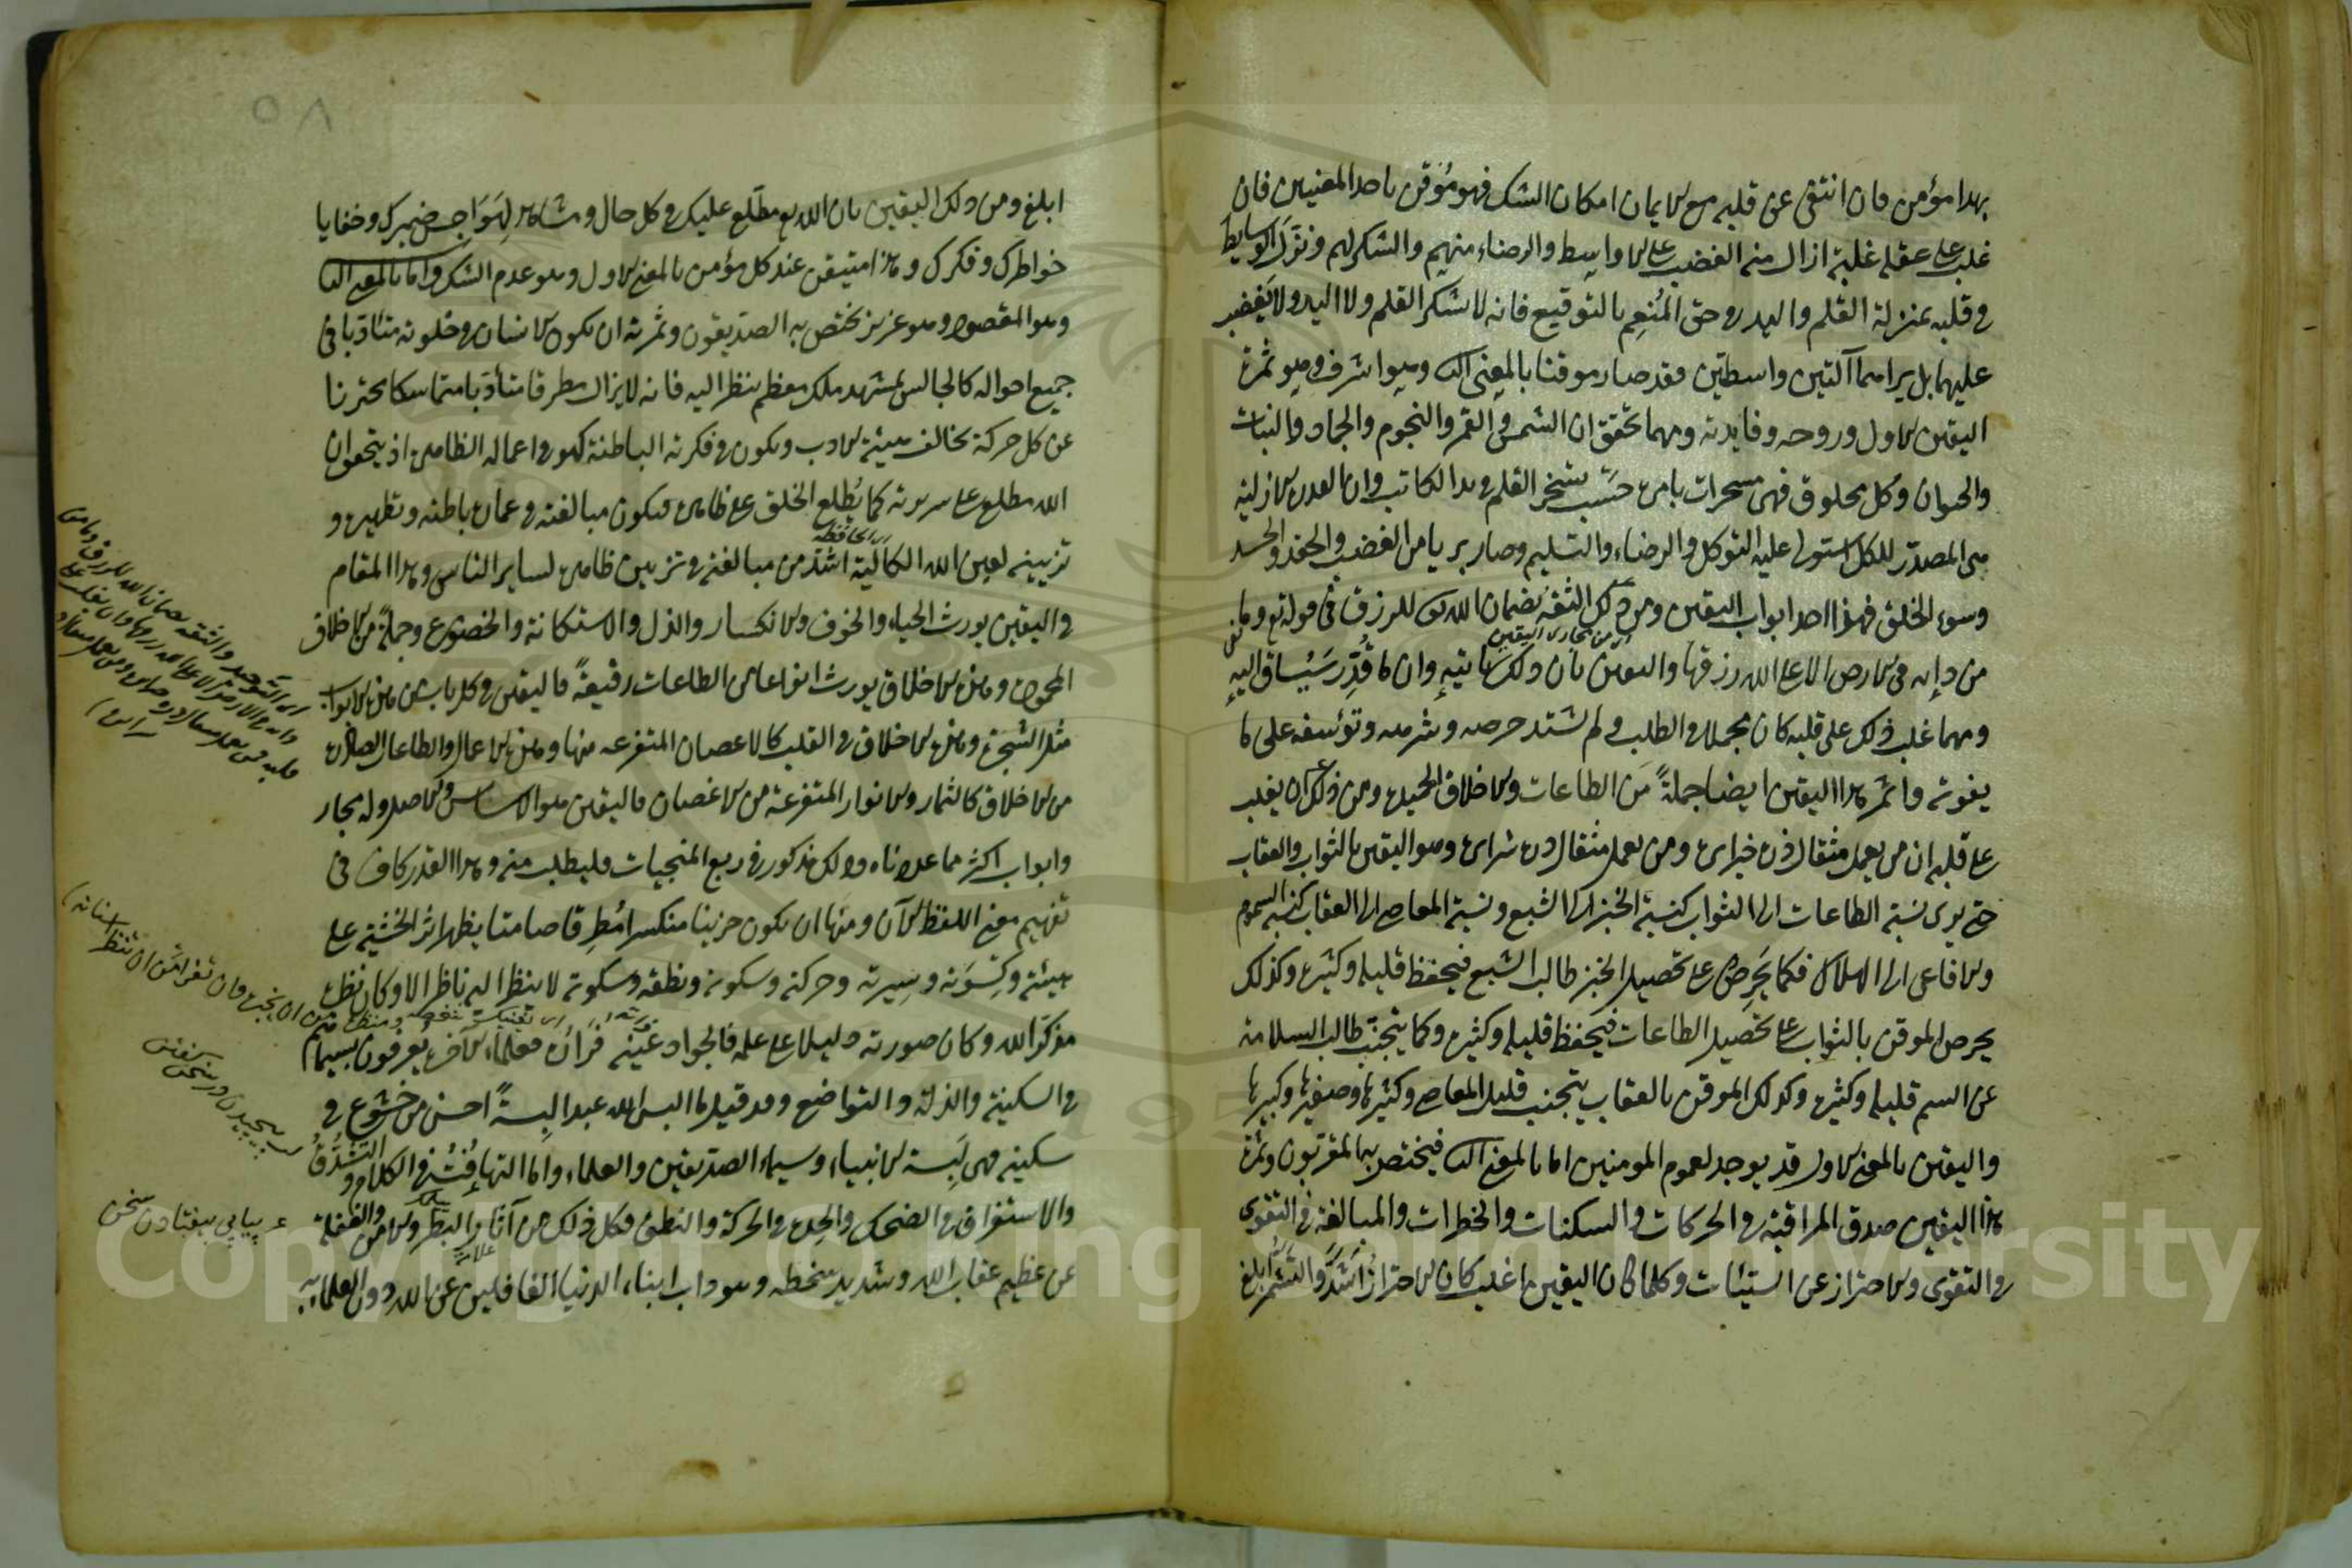 بهذا مؤمن فان انتفى عن قلبه مع الايمان امكان الشك فهو مؤقن باحد المعنيين فان
غلب على عقله غلبة ازال منه الغضب على الاواسط والرضاء منهم والشكر لهم ونزل الوسايط
في قلبه بمنزلة القلم واليد في حق المنعم بالتوقيع فانه لا يشكر القلم ولا اليد ولا يغضب
عليهما بل يراهما آلتين واسطتين فقد صار موقنا بالمعنى الثا وهوا شرف وهو ثمرة
اليقين الاول وروحه وفايدته ومهما تحقق ان الشمس والقمر والنجوم والجماد والنبات
والحيوان وكل مخلوق فهي مسخرات بامره حسب تسخر القلم في يد الكاتب وان القدرة الازلية
هي المصدر للكل استولى عليه التوكل والرضاء والتسليم وصار بريا من الغضب والحقد والحسد
وسوء الخلق فهذا احد ابواب اليقين ومن ذلك الثقة بضمان الله تعالى للرزق في قوله تع وما
اى من مجارى اليقين
من دابة في الارض الا على الله رزقها واليقين بان ذلك ياتيه وان ما قدر سيساق اليه
ومهما غلب ذلك على قلبه كان مجملا في الطلب ولم يشتد حرصه وشرهه وتؤسفه على ما
يفوته واثمر هذا اليقين ايضا جملة من الطاعات والاخلاق الحميدة ومن ذلك ان يغلب
على قلبه ان من يعمل مثقال ذرة خيرا يره ومن يعمل مثقال ذرة شرا يره وهو اليقين بالثواب والعقاب
حتى يرى نسبة الطاعات الى الثواب كنسبة الخبز الى الشبع ونسبة المعاصي الى العقاب كنسبة السموم
والافاعى الى الهلاك فكما يحرص على تحصيل الخبز طالب الشبع فيحفظ قليله وكثيره وكذلك
يحرص الموقن بالثواب على تحصيل الطاعات فيحفظ قليله وكثيره وكما يتجنب طالب السلامة
عن السم قليله وكثيره وكذلك الموقن بالعقاب يتجنب قليل المعاصي وكثيرها وصغيرها وكبيرها
واليقين بالمعنى الاول قد يوجد لعموم المومنين اما بالمعنى الثا فيختص بها المقربون وثمرة
هذا اليقين صدق المراقبة في الحركات والسكنات والخطرات والمبالغة في التقوى
في التقوى والاحتراز عن السيئات وكلما كان اليقين اغلب كان الاحتراز اشد والتشمر ابلغ
٥٨
ابلغ ومن ذلك اليقين بان الله تع مطلع عليك في كل حال ومشاهد لهواجس ضميرك وخفايا
خواطرك وفكرك وهذا متيقن عند كل مؤمن بالمعنى الاول وهو عدم الشك واما بالمعنى الثا
وهو المقصود وهو عزيز يختص به الصديقون وثمرته ان يكون الانسان في خلوته متادبا في
جميع احواله كالجالس بمشهد ملك معظم ينظر اليه فانه لا يزال مطرقا متأدبا متماسكا محترزا
عن كل حركة تخالف هيئة الادب ويكون في فكرته الباطنة كهو في اعماله الظاهرة اذ يتحقق ان
الله مطلع على سريرته كما يطلع الخلق على ظاهره فيكون مبالغته في عمارة باطنه وتطهيره و
اى الحافظة
تزيينه لعين الله الكالية اشد من مبالغته في تزيين ظاهره لساير الناس وهذا المقام
في اليقين يورث الحياء والخوف والانكسار والذل والاستكانة والخضوع وجملة من الاخلاق
المحمودة وهذه الاخلاق يورث انواعا من الطاعات رفيعة فاليقين في كل باب من هذه الابواب
مثل الشجرة وهذه الاخلاق في القلب كالاغصان المتفرعة منها وهذه الاعمال والطاعات الصادرة
من الاخلاق كالثمار والانوار المتفرعة من الاغصان فاليقين هو الاساس والاصل وله مجار
وابواب اكثر مما عددناه وذلك مذكور في ربع المنجيات فليطلب منه وهذا القدر كاف في
تفهيم معنى اللفظ الآن ومنها ان يكون حزينا منكسرا مطرقا صامتا يظهر اثر الخشية على
هيئته وكسوته وسيرته وحركته وسكونه ونطقه وسكوته لا ينظر اليه ناظر الا وكان نظره
مذكرا لله وكان صورته دليلا على علمه فالجواد عينه فراره فعلماء الآخرة يعرفون بسيماهم
في السكينة والذلة والتواضع وقد قيل ما البس الله عبدا لبسة احسن من خشوع في
سكينه فهي لبسة الانبياء وسيماء الصديقين والعلماء واما التهافت في الكلام والتشدق
والاستغراق في الضحك والحدة في الحركة والنطق فكل ذلك من آثار البطر والامن والغفلة
علامة
عن عظيم عقاب الله وشديد سخطه وهو داب ابناء الدنيا الغافلين عن الله دون العلماء به
پيچيدن در سخن گفتن
پياپي بيفتادن سخن
Copyright © King Saud University
1957